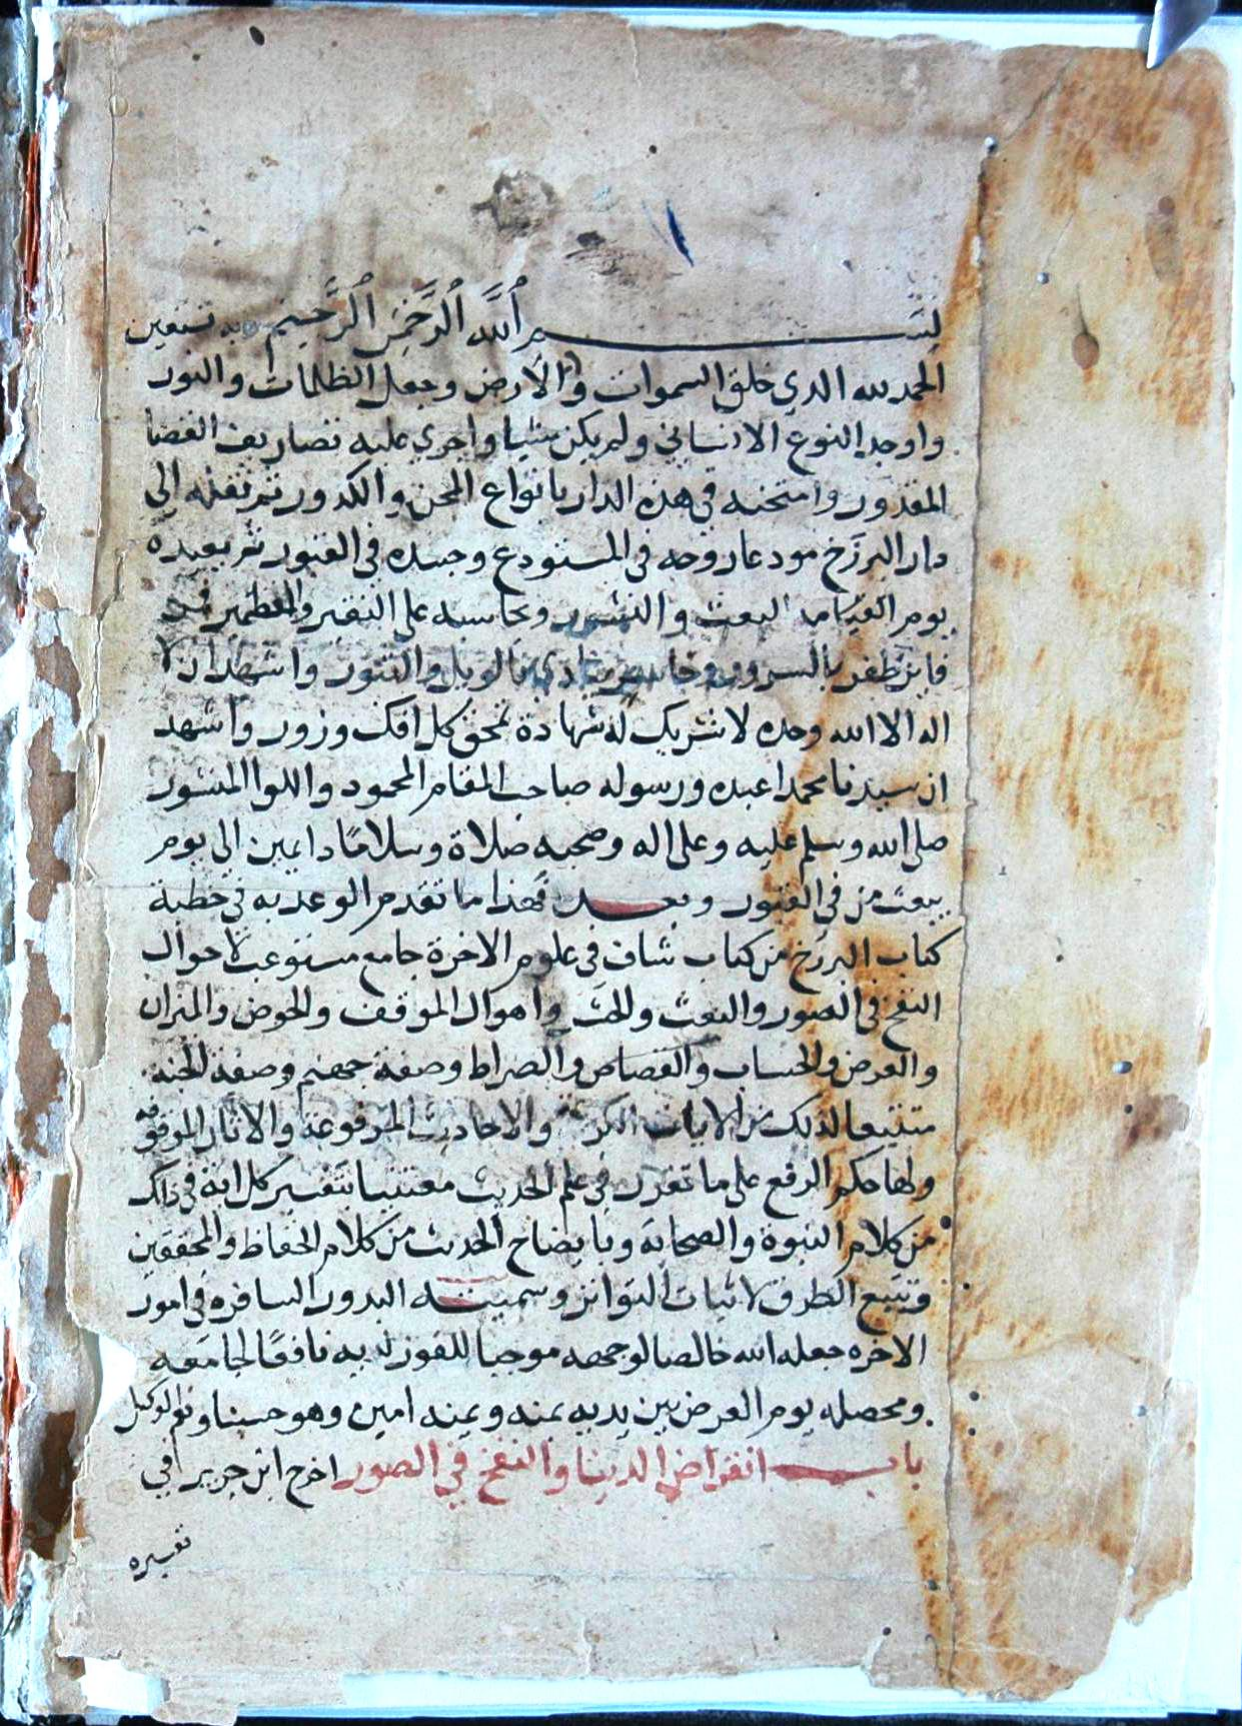 ١
بسم الله الرحمن الرحيم وبه نستعين
الحمد لله الذي خلق السموات والارض وجعل الظلمات والنور
واوجد النوع الانساني ولم يكن شيا واجري عليه تصاريف القضا
المقدور وامتحنه في هذه الدار بانواع المحن والكدور ثم نقله الي
دار البرزخ مودعا روحه في المستودع وجسده في القبور ثم يعيده
يوم القيامه للبعث والنشور ويحاسبه على النقير والقطمير فمن
فايز ظفر بالسرور وخاسر ينادي بالويل والثبور واشهد ان لا
اله الا الله وحده لا شريك له شهادة تمحق كل افك وزور واشهد
ان سيدنا محمدا عبده ورسوله صاحب المقام المحمود واللوا المنشور
صلى الله وسلم عليه وعلى اله وصحبه صلاة وسلامًا دايمين الي يوم
يبعث من في القبور وبعد فهذا ما تقدم الوعد به في خطبة
كتاب البرزخ من كتاب شاف في علوم الاخرة جامع مستوعب لاحوال
النفخ في الصور والبعث والحشر واهوال الموقف والحوض والميزان
والعرض والحساب والقصاص والصراط وصفة جهنم وصفة الجنة
متتبعا لذلك من الايات الكريمة والاحاديث المرفوعة والاثار الموقوفه
ولها حكم الرفع على ما تقرر في علم الحديث معتنيا بتفسير كل اية في ذلك
من كلام النبوة والصحابة وبايضاح الحديث من كلام الحفاظ والمحققين
وتتبع الطرق لاثبات التواتر وسميته البدور السافره في امور
الاخره جعله الله خالصا لوجهه موجبا للفوز لديه نافعًا لجامعه
ومحصله يوم العرض بين يديه بمنه ويمنه امين وهو حسبنا ونعم الوكيل
باب انقراض الدنيا والنفخ في الصور اخرج ابن جرير في
تفسيره